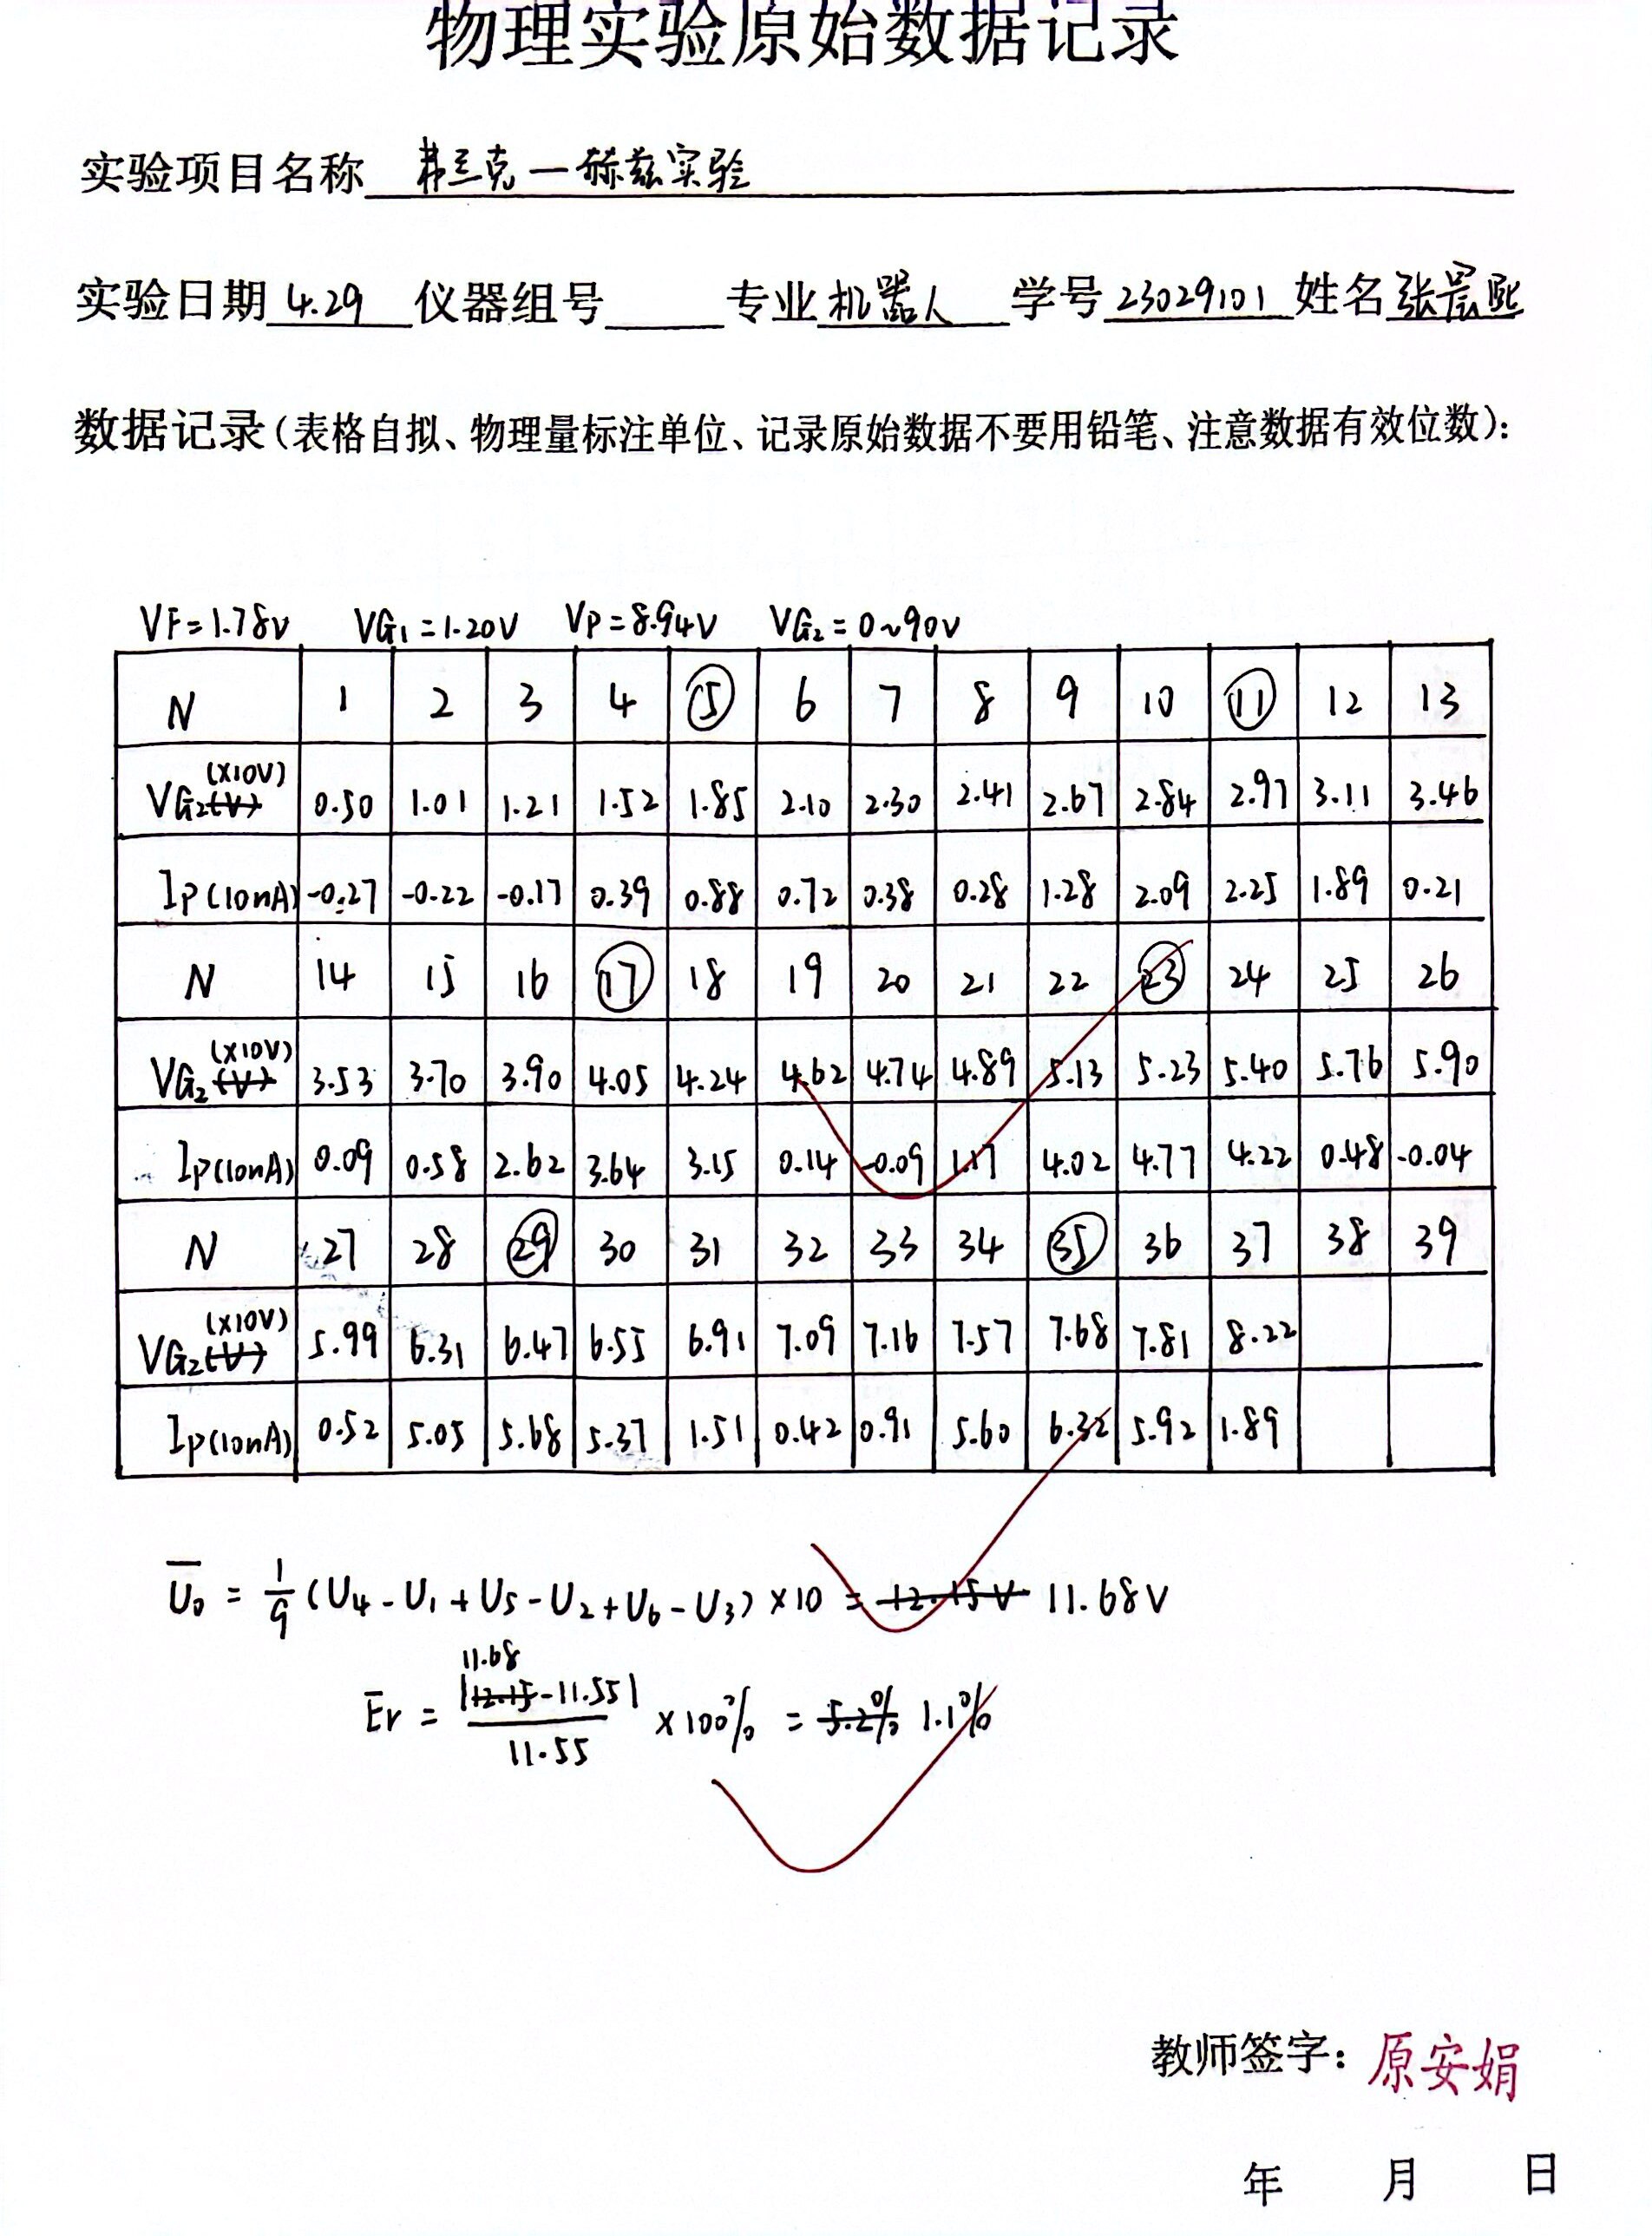 物理实验原始数据记录
实验项目名称 弗兰克一赫兹实验
实验日期 4.29 仪器组号 专业 机器人 学号 23029101 姓名 张晨熙
数据记录(表格自拟、物理量标注单位、记录原始数据不要用铅笔、注意数据有效位数):
VF=1.78V VG₁=1.20V VP=8.94V VG₂=0~90V
N 1 2 3 4 ⑤ 6 7 8 9 10 ⑪ 12 13
VG₂(V) (×10V) 0.50 1.01 1.21 1.52 1.85 2.10 2.30 2.41 2.67 2.84 2.97 3.11 3.46
Ip(10nA) -0.27 -0.22 -0.17 0.39 0.88 0.72 0.38 0.28 1.28 2.09 2.25 1.89 0.21
N 14 15 16 ⑰ 18 19 20 21 22 ㉓ 24 25 26
VG₂(V) (×10V) 3.53 3.70 3.90 4.05 4.24 4.62 4.74 4.89 5.13 5.23 5.40 5.76 5.90
Ip(10nA) 0.09 0.58 2.62 3.64 3.15 0.14 -0.09 1.17 4.02 4.77 4.22 0.48 -0.04
N 27 28 ㉙ 30 31 32 33 34 ㉟ 36 37 38 39
VG₂(V) (×10V) 5.99 6.31 6.47 6.55 6.91 7.09 7.16 7.57 7.68 7.81 8.22
Ip(10nA) 0.52 5.05 5.68 5.37 1.51 0.42 0.91 5.60 6.32 5.92 1.89
U̅₀ = 1/9 (U₄-U₁+U₅-U₂+U₆-U₃)×10 = 12.15V 11.68V
11.68
E̅r = |12.15-11.55| / 11.55 ×100% = 5.2% 1.1%
教师签字: 原安娟
年 月 日